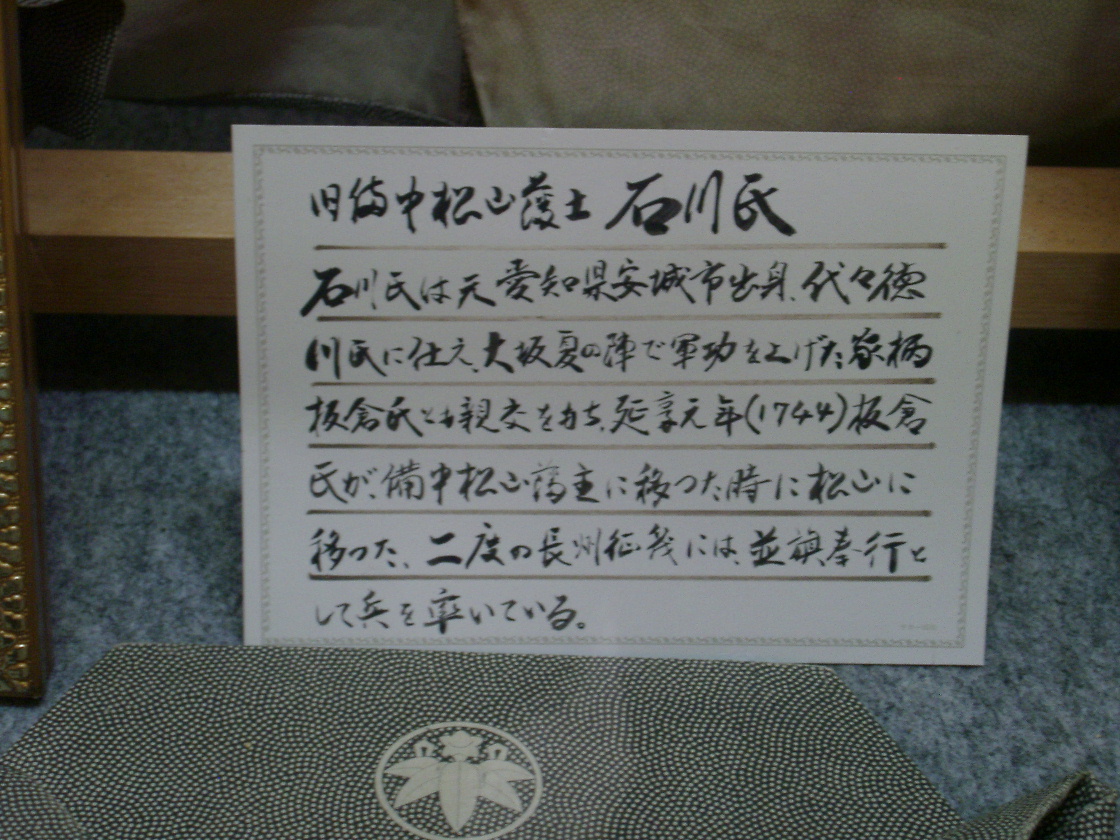 旧備中松山藩士 石川氏
石川氏は元愛知県安城市出身、代々徳
川氏に仕え、大坂夏の陣で軍功を上げた家柄
板倉氏とも親交をもち、延享元年(1744)板倉
氏が、備中松山藩主に移つた時に松山に
移つた、二度の長州征伐には、並旗奉行と
して兵を率いている。